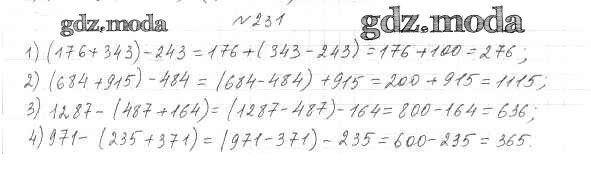 gdz.moda №231 gdz.moda
1) (176+343)-243=176+(343-243)=176+100=276;
2) (684+915)-484=(684-484)+915=200+915=1115;
3) 1287-(487+164)=(1287-487)-164=800-164=636;
4) 971-(235+371)=(971-371)-235=600-235=365.